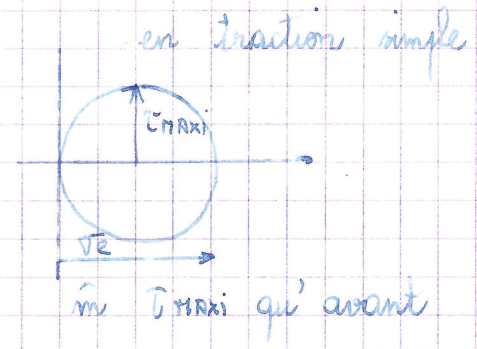 en traction simple
τMAXi
σe
m̂ τMAXi qu'avant